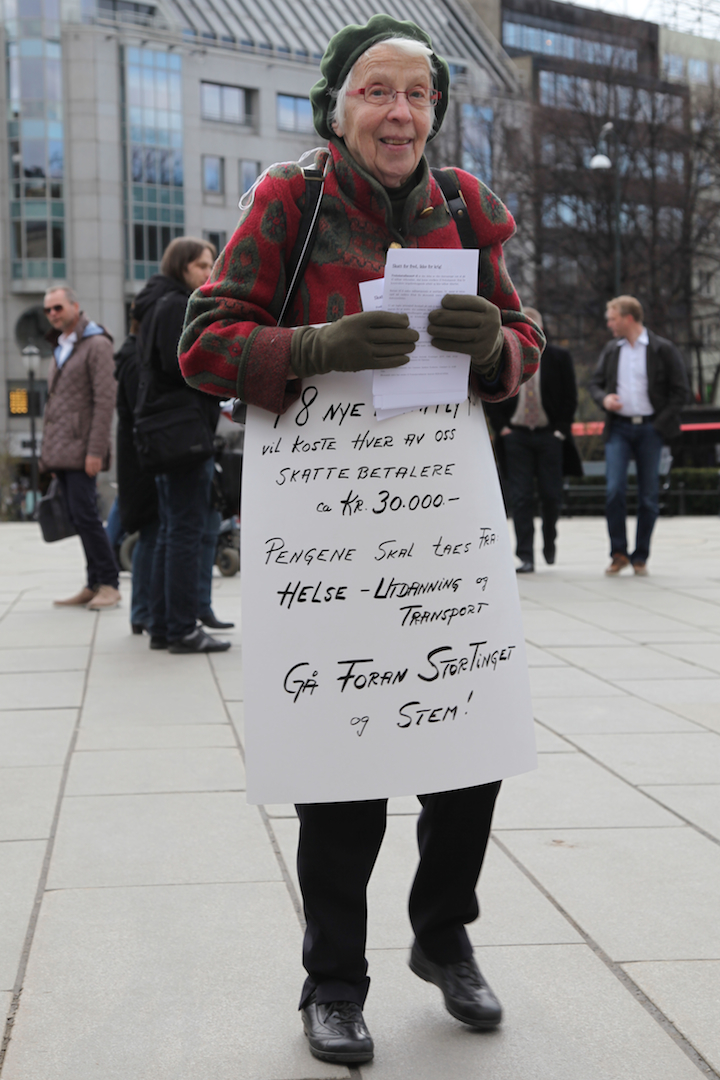 48 NYE
VIL KOSTE HVER AV OSS
SKATTEBETALERE
ca KR. 30.000.-
PENGENE SKAL TAES FRA
HELSE - UTDANNING og
TRANSPORT
GÅ FORAN STORTINGET
og STEM!